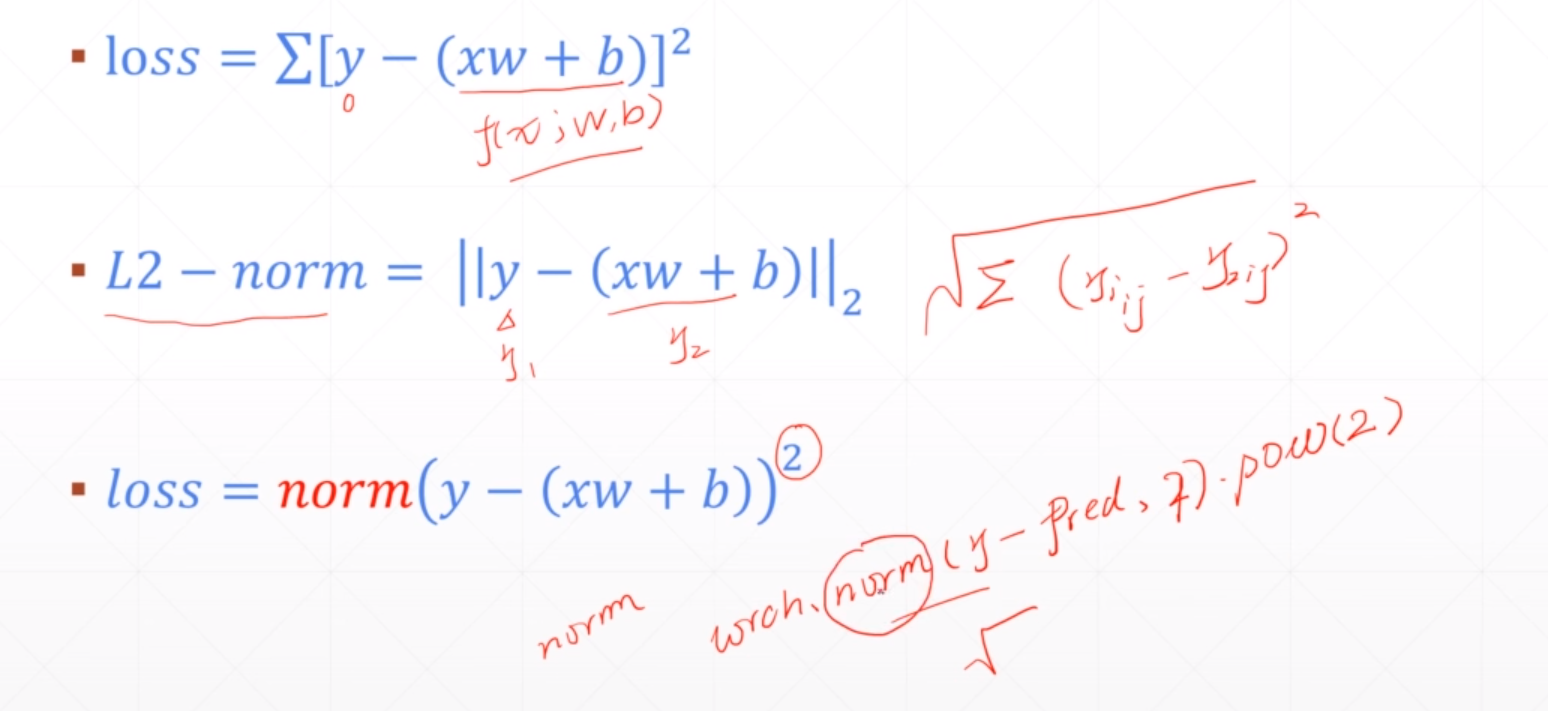 ▪ loss = Σ[y − (xw + b)]²
0
f(x; w, b)
▪ L2 − norm = ||y − (xw + b)||₂ √Σ (y₁ᵢⱼ − y₂ᵢⱼ)²
y₁ y₂
▪ loss = norm(y − (xw + b))²
norm torch.norm(y − pred, 2).pow(2)
√